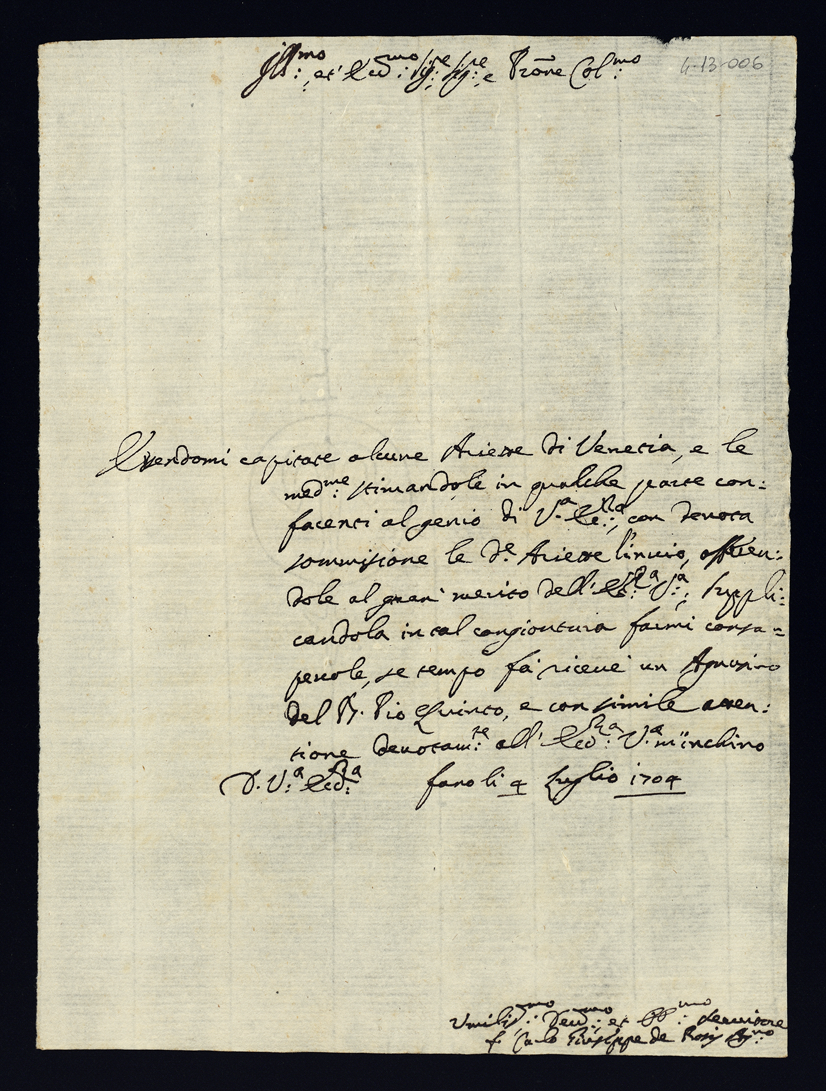 Ill:mo et' Ecc:mo Sig:re Sig:re e Prōne Col:mo
4-13-006
Essendomi capitate alcune Ariette di Venetia, e le
med:me stimandole in qualche parte con:
facenti al genio di V:a Ecc:za, con devota
sommissione le d:e Ariette l'inuio, offeren:
dole al gran' merito dell' Ecc:za V:a, suppli:
candola in tal congiontura farmi consa=
peuole, se tempo fà riceuè un
del B. Pio Quinto, e con simile atten:
tione deuotam:te all' Ecc:za V:a m'inchino
D. V:a Ecc:za fano li 4 Luglio 1704
Umiliss:mo Deuo:mo et Obb:mo Seruitore
f. Carlo Giuseppe de